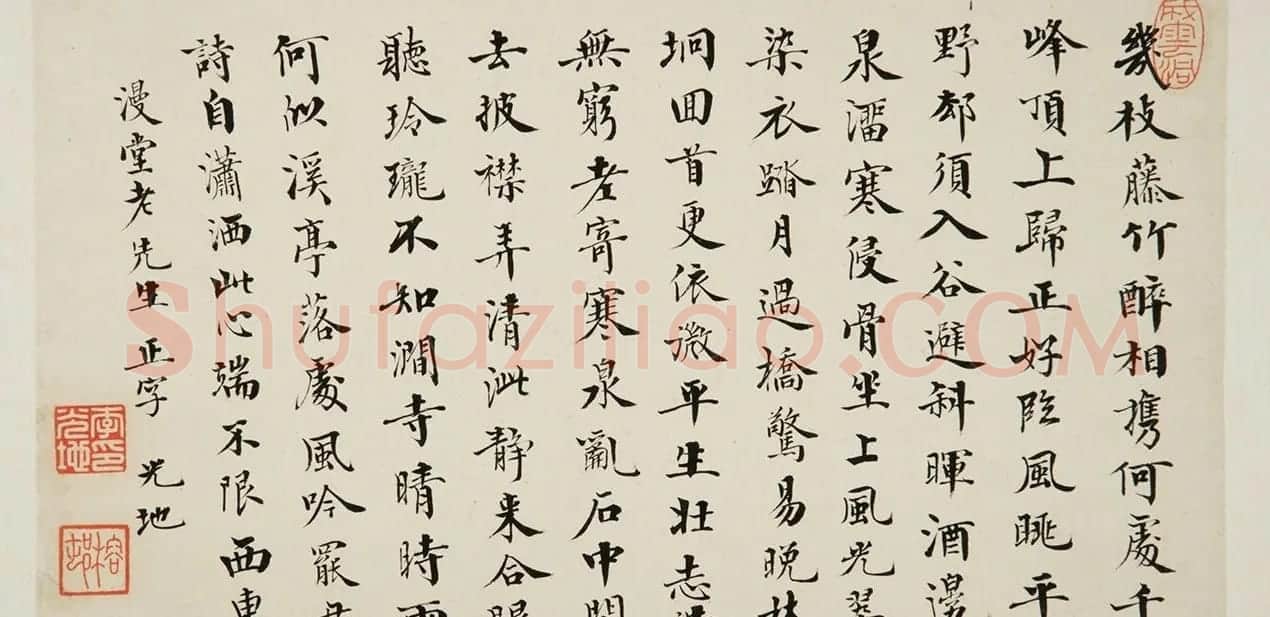 幾枝藤竹醉相攜何處千
峰頂上歸正好臨風眺平
野却須入谷避斜暉酒邊
泉溜寒侵骨坐上風光翠
染衣踏月過橋驚易晚
坰回首更依微平生壯志
無窮老寄寒泉亂石中閒
去披襟弄清泚靜來合眼
聽玲瓏不知澗寺晴時雨
何似溪亭落處風吟罷
詩自瀟洒此心端不限西東
漫堂老先生正字 光地
李光地印
榕村
Shufaziliao.COM